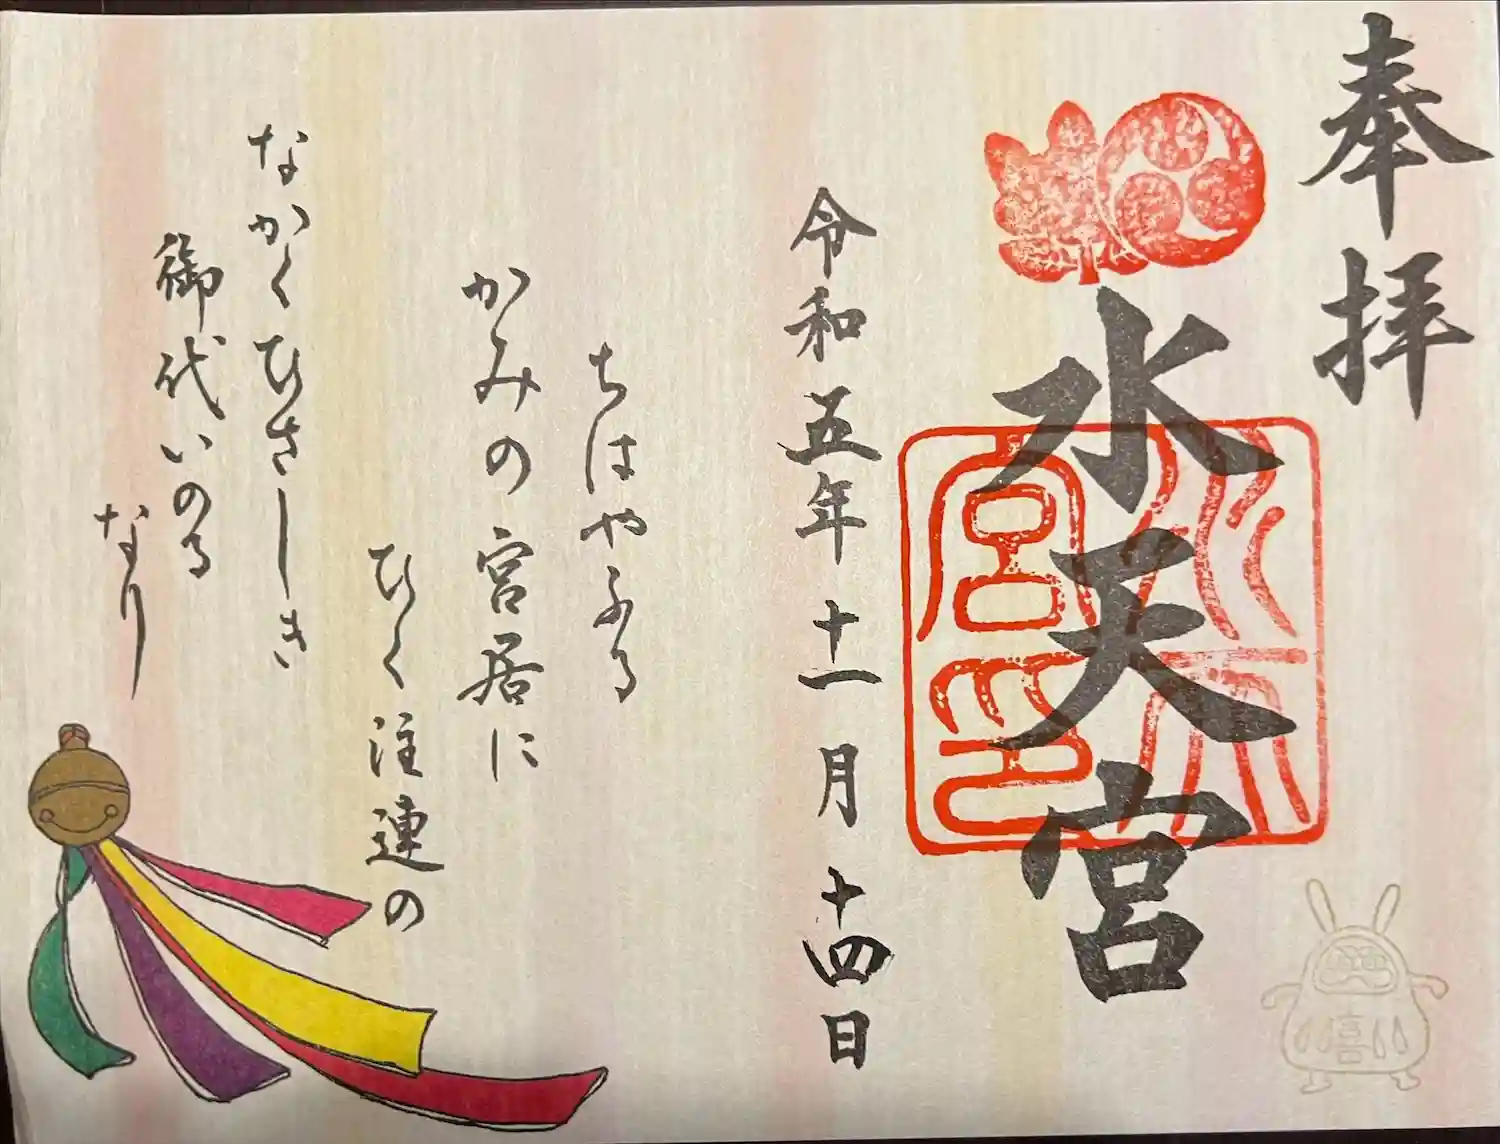 奉拝
水天宮
水天宮印
令和五年十一月十四日
ちはやふる
かみの宮居に
ひく注連の
なかくひさしき
御代いのる
なり
喜